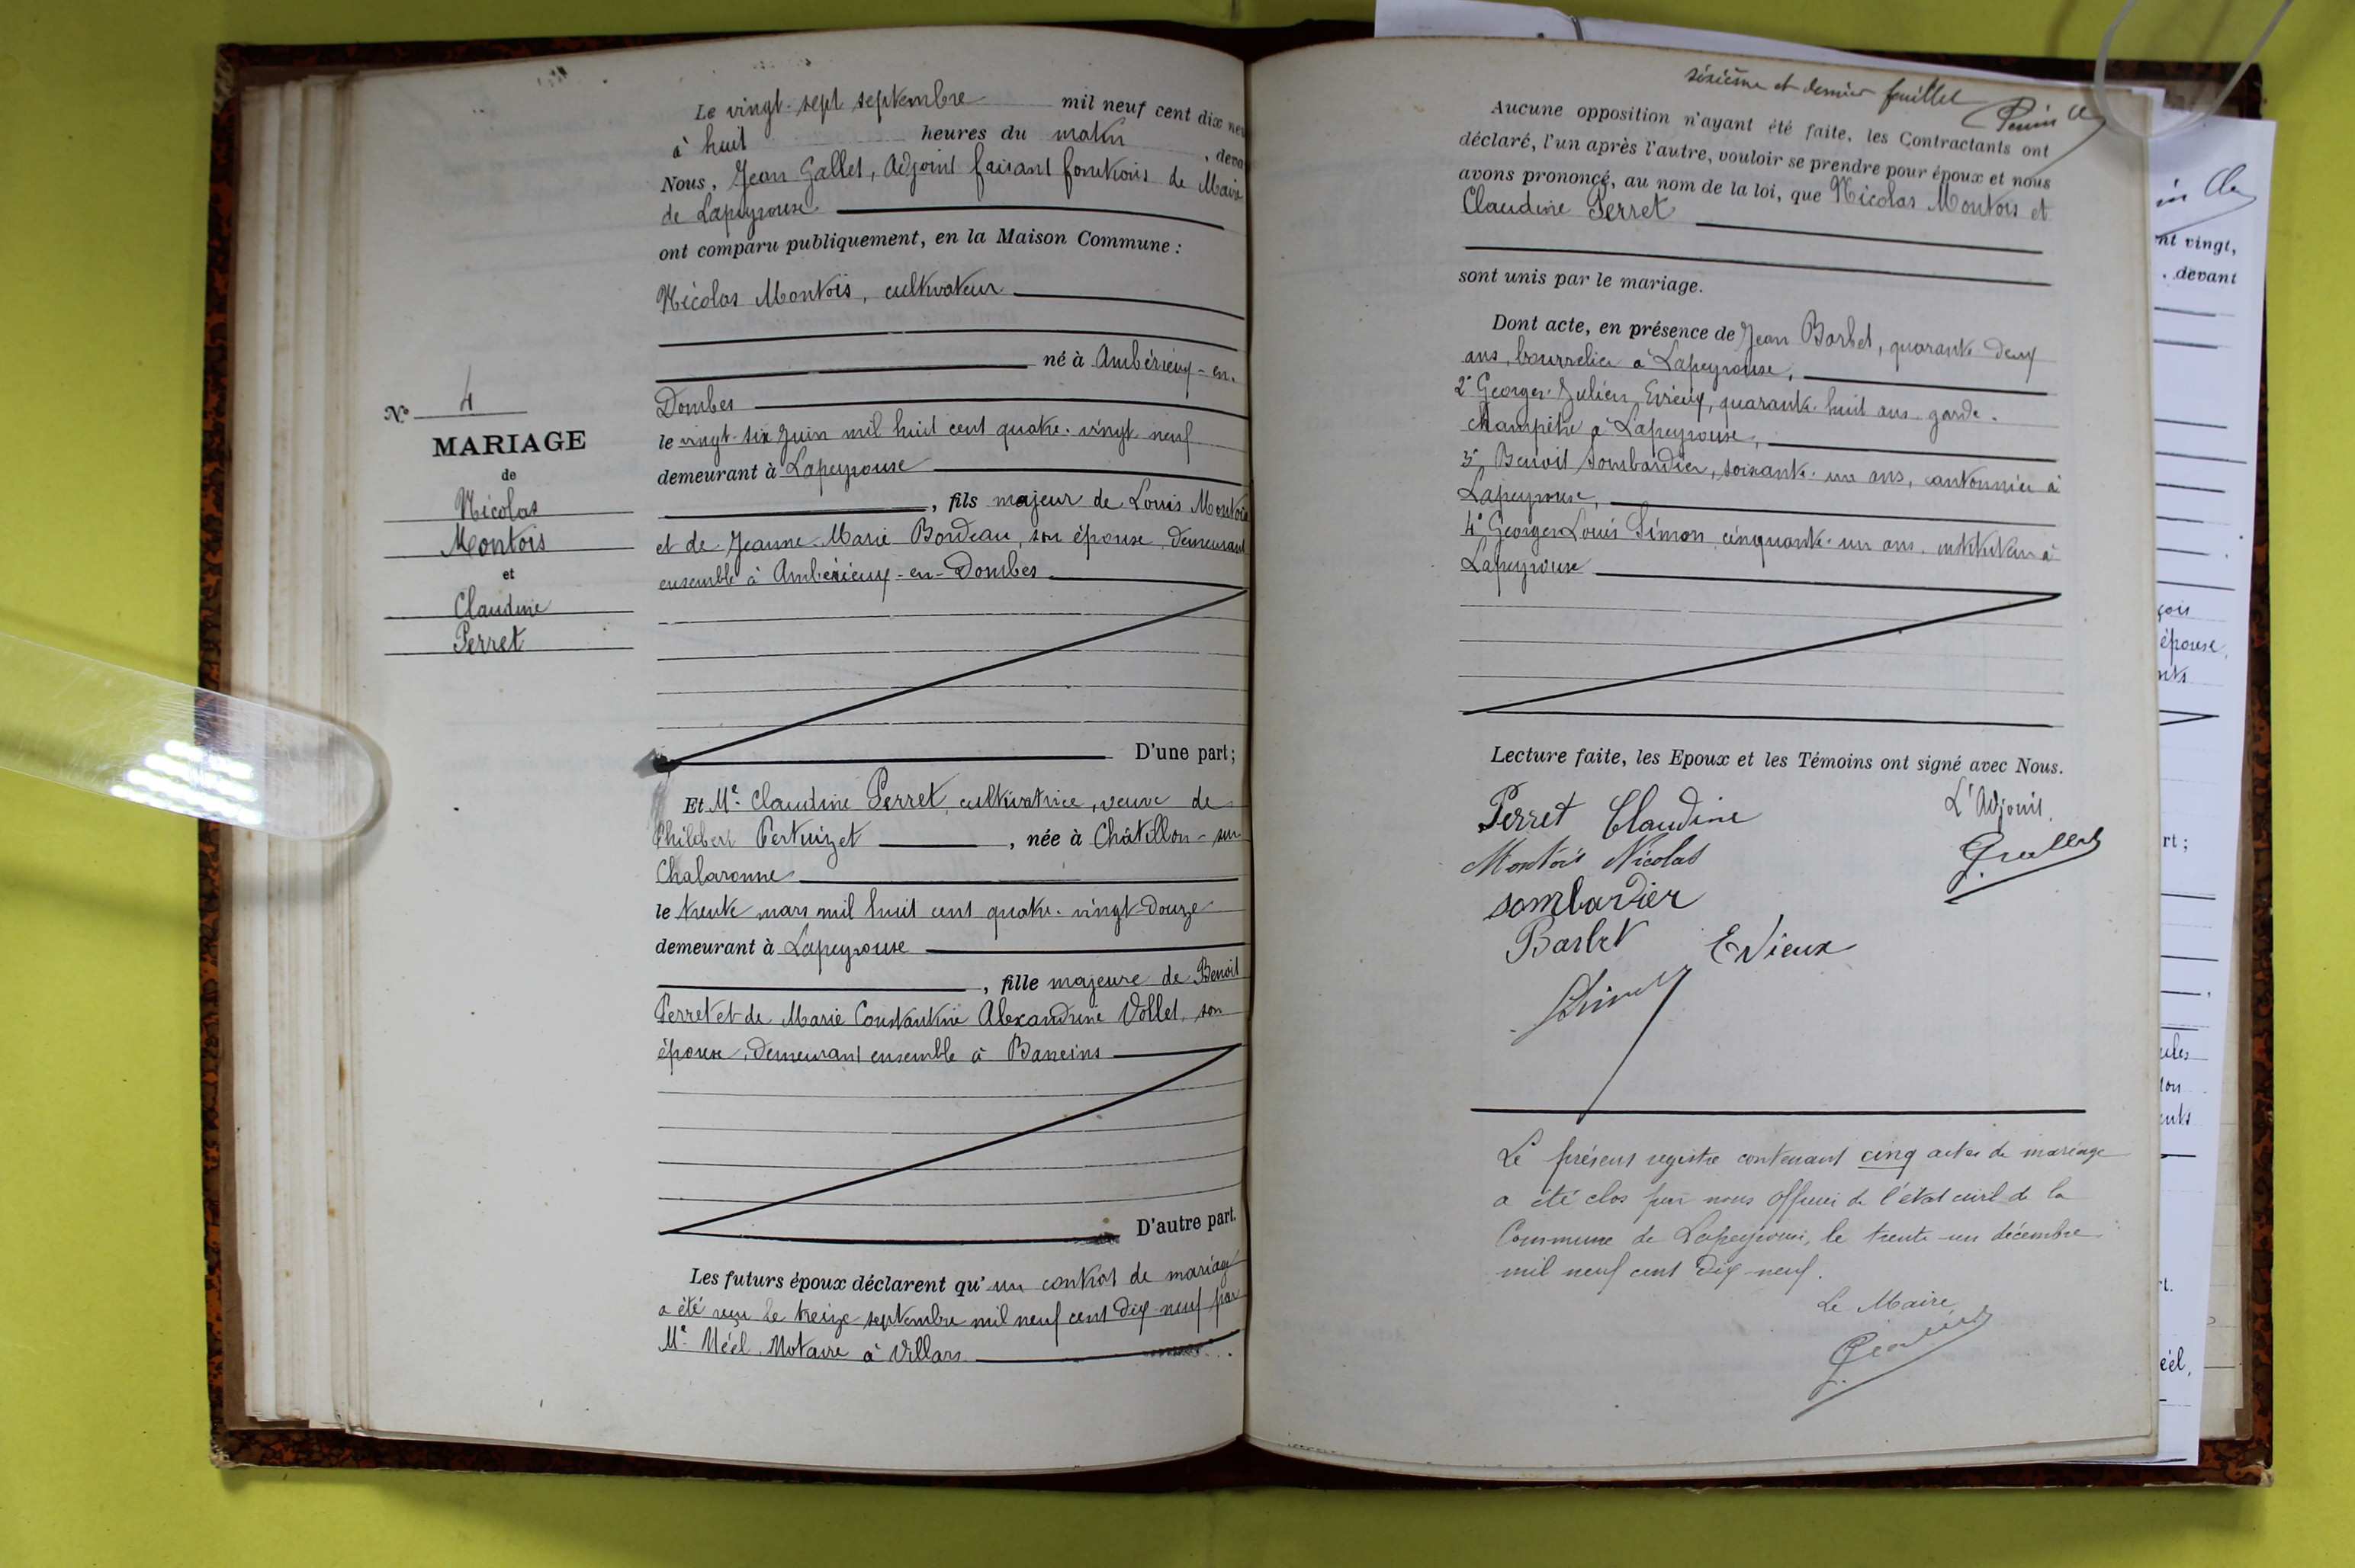 Le vingt-sept septembre mil neuf cent dix neu
à huit heures du matin, deva
Nous, Jean Gallet, Adjoint faisant fonctions de Maire
de Lapeyrouse
ont comparu publiquement, en la Maison Commune :
Nicolas Montois, cultivateur
né à Ambérieux-en-
Dombes
le vingt-six Juin mil huit cent quatre-vingt neuf
demeurant à Lapeyrouse
, fils majeur de Louis Montois
et de Jeanne-Marie Bordeau, son épouse demeurant
ensemble à Ambérieux-en-Dombes
D'une part;
Nº 4
MARIAGE
de
Nicolas
Montois
et
Claudine
Perret
Et Me Claudine Perret, cultivatrice, veuve de
Philibert Pertuizet, née à Châtillon-sur
Chalaronne
le trente mars mil huit cent quatre-vingt-douze
demeurant à Lapeyrouse
, fille majeure de Benoit
Perret et de Marie Constantine Alexandrine Vollet, son
épouse, demeurant ensemble à Baneins
D'autre part.
Les futurs époux déclarent qu'un contrat de mariage
a été reçu le treize septembre mil neuf cent dix-neuf par
Me Néel, Notaire à Villars
sixième et dernier feuillet
Aucune opposition n'ayant été faite, les Contractants ont
déclaré, l'un après l'autre, vouloir se prendre pour époux et nous
avons prononcé, au nom de la loi, que Nicolas Montois et
Claudine Perret
sont unis par le mariage.
Dont acte, en présence de Jean Barbet, quarante-deux
ans, bourrelier à Lapeyrouse,
2º Georges-Julien Evieux, quarante-huit ans garde-
champêtre à Lapeyrouse,
3º Benoit Sombardier, soixante-un ans, cantonnier à
Lapeyrouse,
4º Georges Louis Simon cinquante-un ans, instituteur à
Lapeyrouse
Lecture faite, les Epoux et les Témoins ont signé avec Nous.
Perret Claudine
L'Adjoint.
Montois Nicolas
Jgallet
sombardier
Barbet Evieux
Simon
Le présent registre contenant cinq actes de mariage
a été clos par nous Officier de l'état civil de la
Commune de Lapeyrouse, le trente-un décembre
mil neuf cent dix-neuf.
Le Maire
nt vingt,
, devant
çois
épouse,
nts
rt ;
ules
lon
ents
t.
éel,